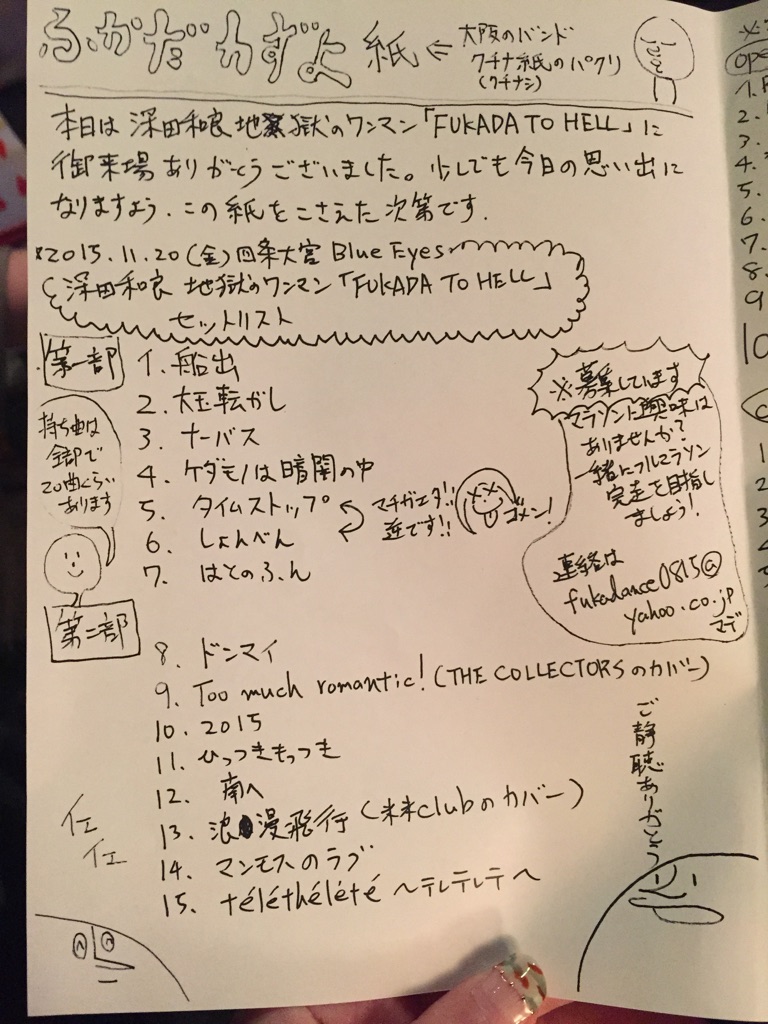 ふかだかずよ紙 ← 大阪のバンド
クチナ紙のパクリ
(クチナシ)
本日は深田和良地獄のワンマン「FUKADA TO HELL」に
御来場ありがとうございました。少しでも今日の思い出に
なりますよう、この紙をこさえた次第です.
*2015.11.20(金)四条大宮 Blue Eyes
深田和良 地獄のワンマン「FUKADA TO HELL」
セットリスト
第一部
1. 船出
2. 大玉転がし
3. ナーバス
4. ケダモノは暗闇の中
5. タイムストップ
6. しょんべん
7. はとのふん
マチガエタ!!
逆です!!
ゴメン!
持ち曲は
全部で
20曲くらい
あります
※募集しています
マラソンに興味は
ありませんか?
一緒にフルマラソン
完走を目指し
ましょう!
連絡は
fukadance0815@
yahoo.co.jp
マデ
第二部
8. ドンマイ
9. Too much romantic! (THE COLLECTORSのカバー)
10. 2015
11. ひっつきもっつき
12. 南へ
13. 浪漫飛行(米米clubのカバー)
14. マンモスのラブ
15. téléthélété 〜テレテレテ〜
ご静聴ありがとう
イエ
イエ
※
ope
1.
2.
3.
4.
5.
6.
7.
8.
9
10
1
2